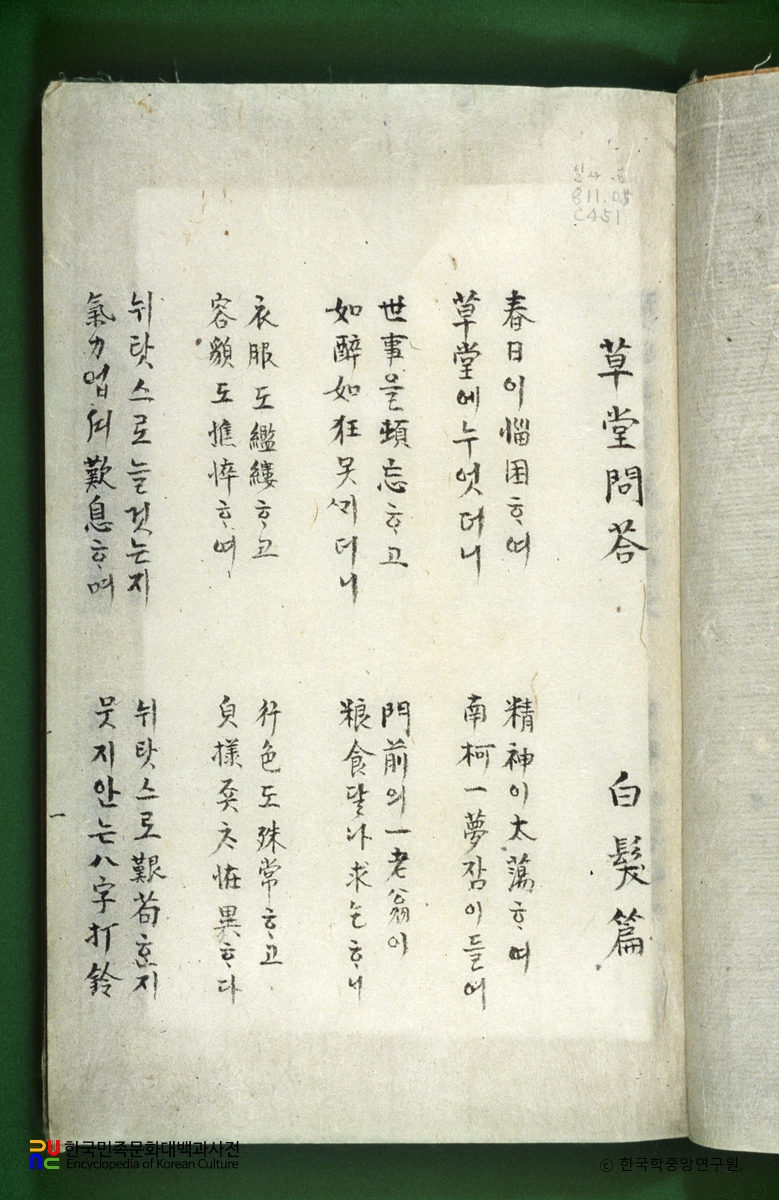 일사 고
811.05
C451
草堂問答
白髮篇
春日이 惱困ᄒᆞ여
精神이 太蕩ᄒᆞ여
草堂에 누엇더니
南柯一夢 잠이 들어
世事을 頓忘ᄒᆞ고
門前의 一老翁이
如醉如狂 못 ᄭᆡ더니
粮食 달나 求乞ᄒᆞ니
衣服도 繿縷ᄒᆞ고
行色도 殊常ᄒᆞ고
容貌도 憔悴ᄒᆞ여
貟樣 奀大 恠異ᄒᆞ다
뉘 탓스로 늘것는지
뉘 탓스로 艱苟ᄒᆞᆫ지
氣力 업셔 歎息ᄒᆞ며
뭇지 안는 八字打鈴
一
한국민족문화대백과사전
Encyclopedia of Korean Culture
ⓒ 한국학중앙연구원